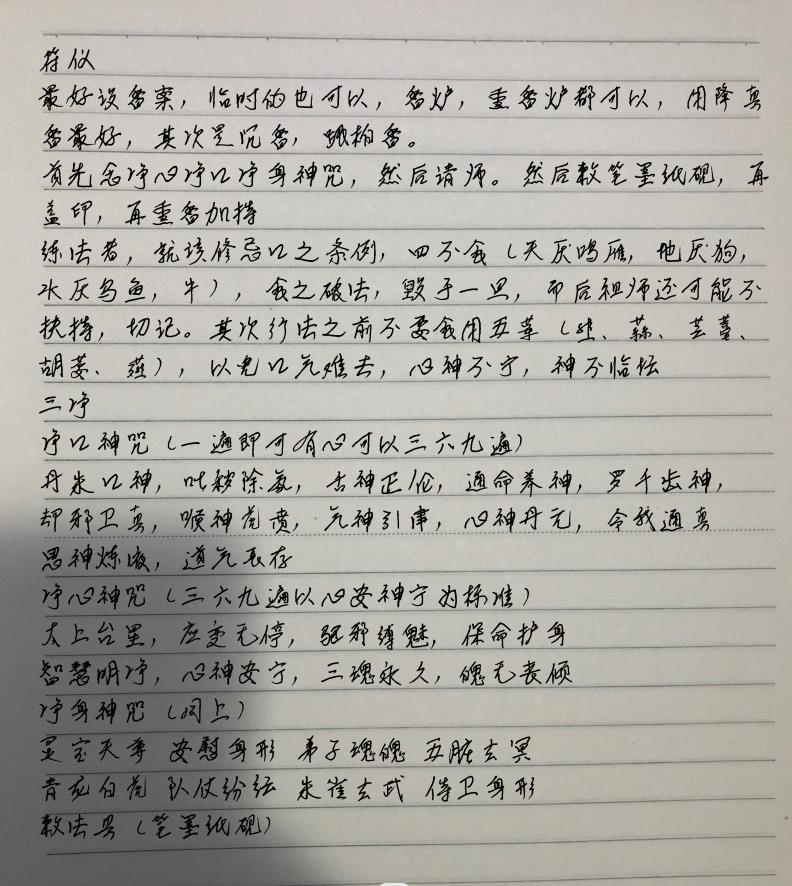 符仪
最好设香案，临时的也可以，香炉，熏香炉都可以，用降真
香最好，其次是沉香，或柏香。
首先念净心净口净身神咒，然后请师。然后敕笔墨纸砚，再
盖印，再熏香加持
练法者，就该修忌口之条例，四不食（天厌鸣雁，地厌狗，
水厌乌鱼，牛），食之破法，毁于一旦，而后祖师还可能不
扶持，切记。其次行法之前不要食用五荤（韭、蒜、芸薹、
胡荽、薤），以免口气难去，心神不宁，神不临坛
三净
净口神咒（一遍即可有心可以三六九遍）
丹朱口神，吐秽除氛，舌神正伦，通命养神，罗千齿神，
却邪卫真，喉神虎贲，气神引津，心神丹元，令我通真
思神炼液，道气长存
净心神咒（三六九遍以心安神宁为标准）
太上台星，应变无停，驱邪缚魅，保命护身
智慧明净，心神安宁，三魂永久，魄无丧倾
净身神咒（同上）
灵宝天尊 安慰身形 弟子魂魄 五脏玄冥
青龙白虎 队仗纷纭 朱雀玄武 侍卫身形
敕法具（笔墨纸砚）